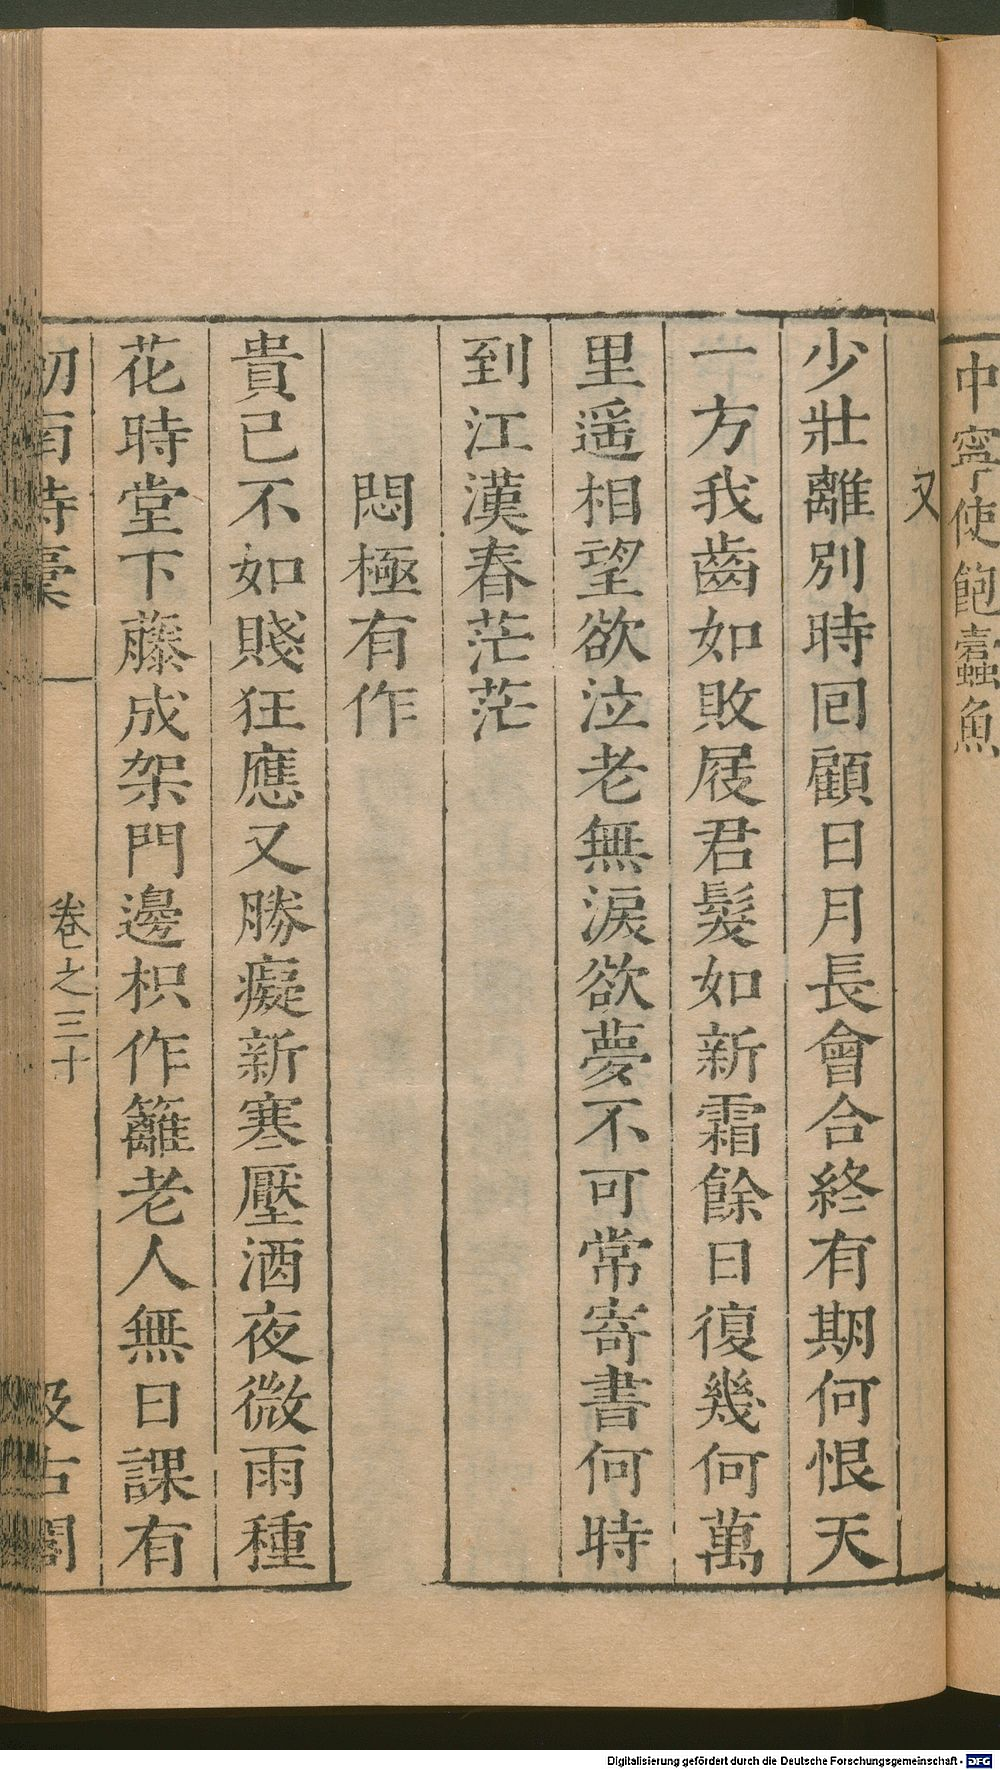 中寧使飽蠹魚
又
少壯離別時回顧日月長會合終有期何恨天
一方我齒如敗屐君髮如新霜餘日復幾何萬
里遥相望欲泣老無淚欲夢不可常寄書何時
到江漢春茫茫
悶極有作
貴已不如賤狂應又勝癡新寒壓酒夜微雨種
花時堂下藤成架門邊枳作籬老人無日課有
卷之三十
汲古閣
Digitalisierung gefördert durch die Deutsche Forschungsgemeinschaft - DFG